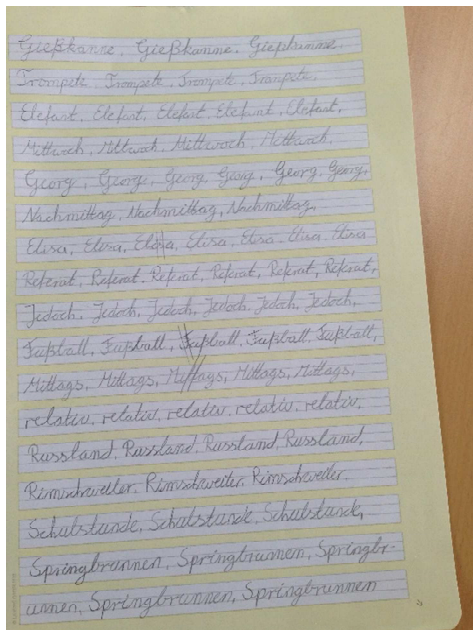 Gießkanne, Gießkanne, Gießkanne,
Trompete, Trompete, Trompete, Trompete,
Elefant, Elefant, Elefant, Elefant, Elefant,
Mittwoch, Mittwoch, Mittwoch, Mittwoch,
Georg, Georg, Georg, Georg, Georg, Georg,
Nachmittag, Nachmittag, Nachmittag,
Elisa, Elisa, Elisa, Elisa, Elisa, Elisa, Elisa
Referat, Referat, Referat, Referat, Referat, Referat,
Jedoch, Jedoch, Jedoch, Jedoch, Jedoch, Jedoch,
Fußball, Fußball, Fußball, Fußball, Fußball,
Mittags, Mittags, Mittags, Mittags, Mittags,
relativ, relativ, relativ, relativ, relativ,
Russland, Russland, Russland, Russland,
Rimschweiler, Rimschweiler, Rimschweiler,
Schulstunde, Schulstunde, Schulstunde,
Springbrunnen, Springbrunnen, Springbr-
unnen, Springbrunnen, Springbrunnen